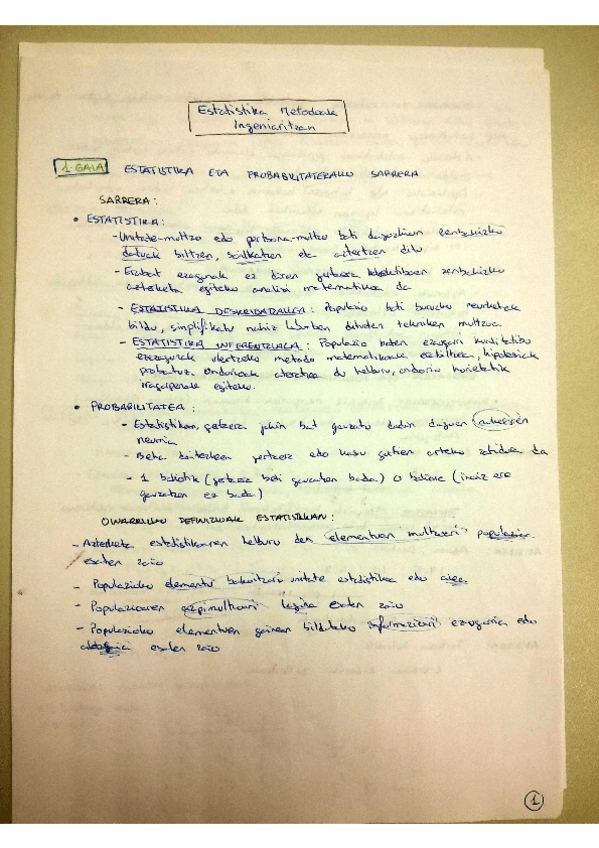 Estatistika Metodoak
Ingeniaritzan
1. GAIA ESTATISTIKA ETA PROBABILITATERAKO SARRERA
SARRERA:
• ESTATISTIKA:
- Unitate-multzo edo pertsona-multzo bati dagozkion zenbakizko
datuak biltzen, sailkatzen eta aztertzen ditu
- Erabat ezagunak ez diren gertaera kolektiboen zenbakizko
azterketa egiteko analisi matematikoa da
- ESTATISTIKA DESKRIBATZAILEA: Populazio bati buruzko neurketak
bildu, simplifikatu nahiz laburben dituten tekniken multzoa.
- ESTATISTIKA INFERENTZIALA: Populazio baten ezaugarri kuantitatibo
ezezagunak ulertzeko metodo matematikoak erabiltzea, hipotesiak
probatuz. Ondorioak ateratzea du helburu, ondorio horietatik
iragarpenak egiteko.
• PROBABILITATEA:
- Estatistikan, gertaera jakin bat gauzatu dadin dagoen aukeraren
neurria
- Beha daitezkeen gertaera edo kasu guztien arteko zatidura da
- 1 baliotik (gertaera beti gauzatzen bada) 0 baliora (inoiz ere
gauzatzen ez bada)
OINARRIZKO DEFINIZIOAK ESTATISTIKAN:
- Azterketa estatistikoaren helburu den elementuen multzoari populazioa
esaten zaio
- Populazioko elementu bakoitzari unitate estatistikoa edo
- Populazioaren azpimultzoari lagina esaten zaio
- Populazioko elementuen gainean bildutako informazioari ezaugarria edo
esaten zaio
1